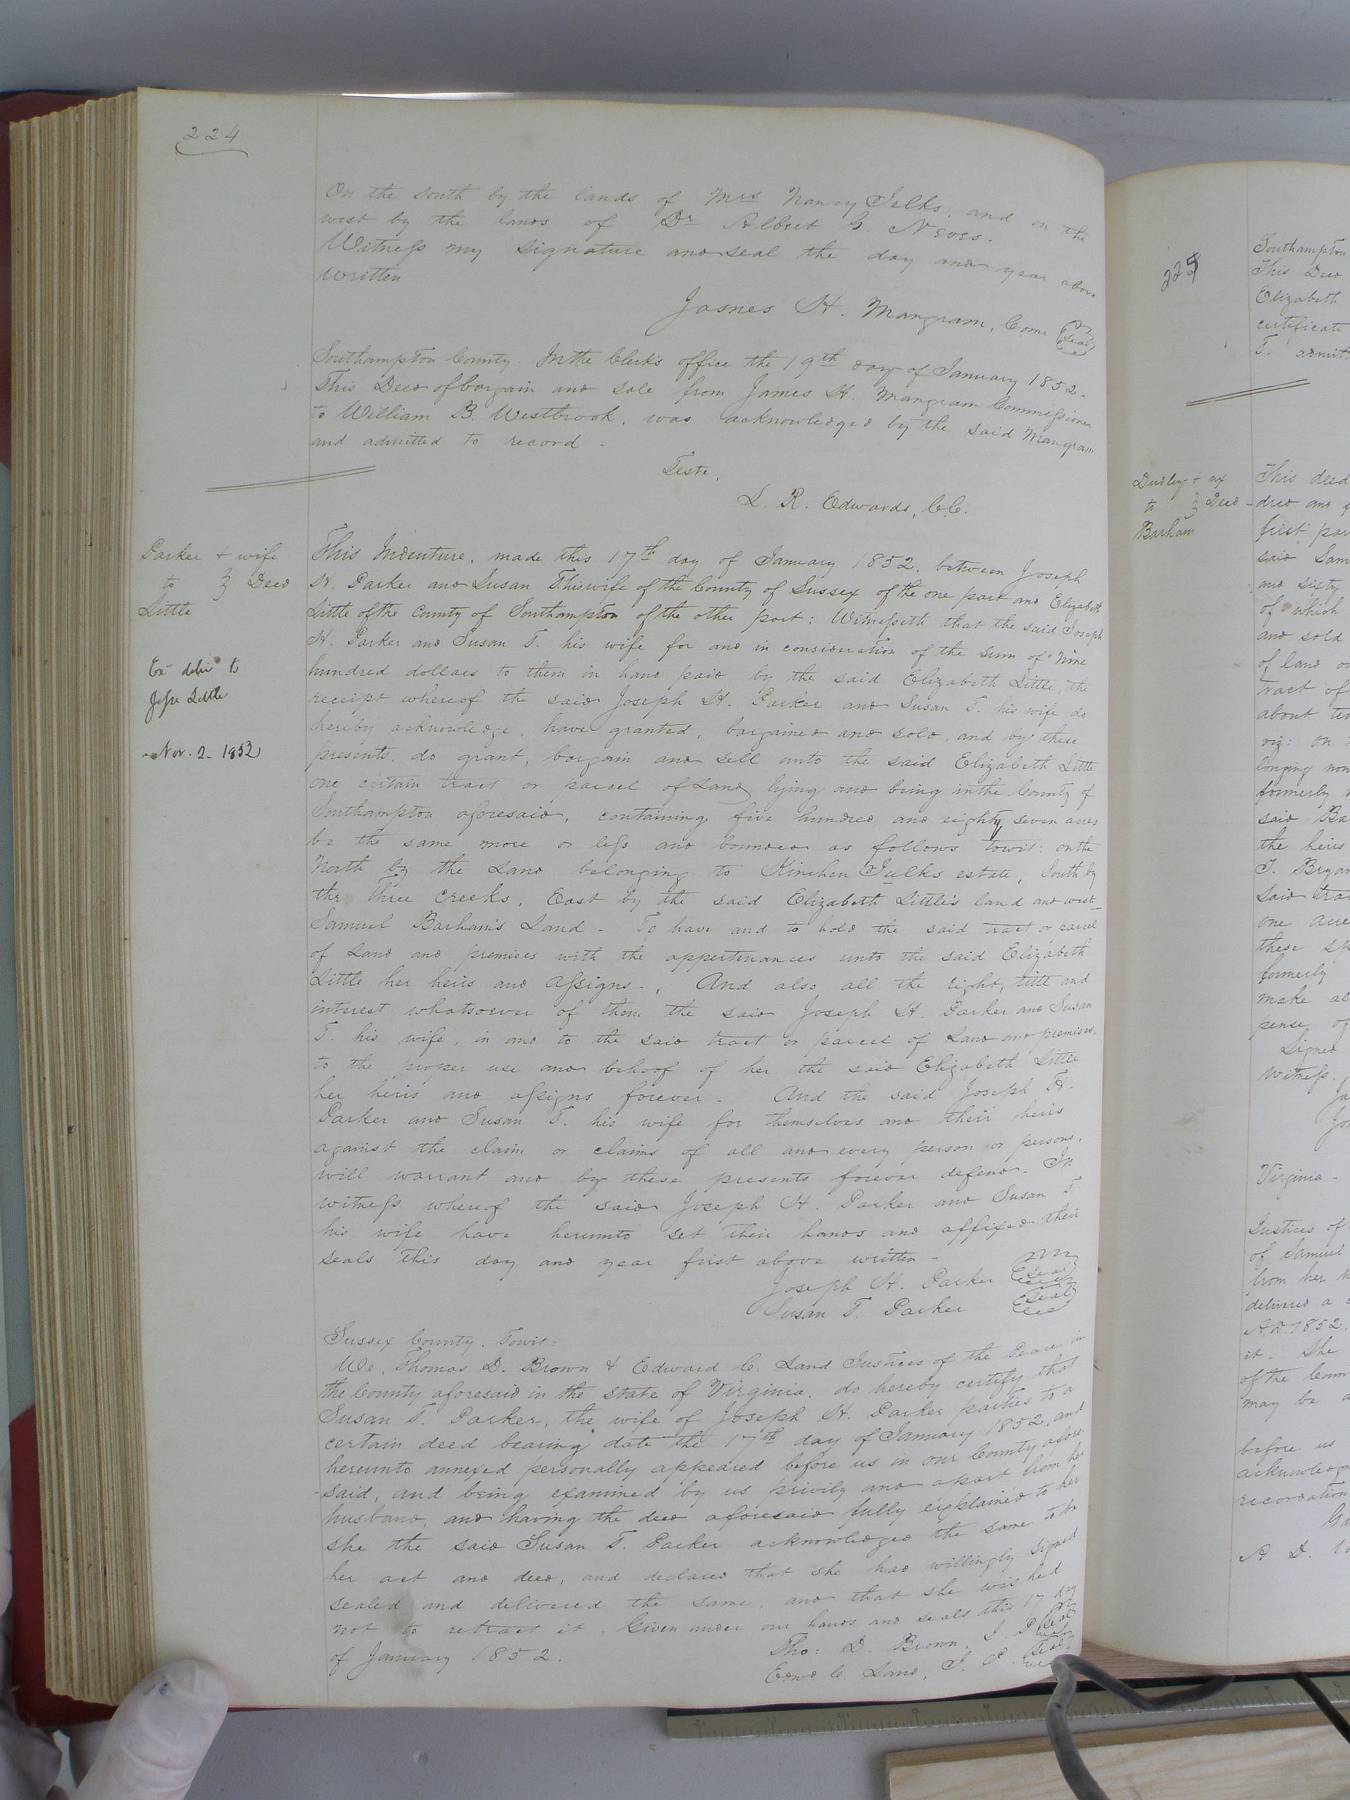 224
On the South by the lands of Mrs Nancy Jelks, and on the
west by the lands of Dr Albert G.
Witness my signature and seal the day and year above
written
James H. Mangram, Com (Seal)
Southampton County. In the Clerk's office the 19th day of January 1852.
This Deed of bargain and sale from James H. Mangram Commissioner
to William B. Westbrook, was acknowledged by the said Mangram
and admitted to record.
Teste,
L. R. Edwards, C.C.
Parker & wife
to } Deed
Little
Ex delir to
Jesse Little
Nov. 2. 1852
This Indenture, made this 17th day of January 1852, between Joseph
H. Parker and Susan T his wife of the County of Sussex of the one part and Elizabeth
Little of the County of Southampton of the other part: Witnesseth that the said Joseph
H. Parker and Susan T. his wife for and in consideration of the sum of Nine
hundred dollars to them in hand paid by the said Elizabeth Little, the
receipt whereof the said Joseph H. Parker and Susan T. his wife do
hereby acknowledge, have granted, bargained and sold, and by these
presents, do grant, bargain and sell unto the said Elizabeth Little
one certain tract or parcel of Land lying and being in the County of
Southampton aforesaid, containing five hundred and eighty seven acres
be the same more or less and bounded as follows towit: on the
North by the Land belonging to Kinchen Julks estate, South by
the three creeks, East by the said Elizabeth Little's land and west
Samuel Barham's Land - To have and to hold the said tract or parcel
of Land and premises with the appertenances unto the said Elizabeth
Little her heirs and assigns -, And also all the right, title and
interest whatsoever of them the said Joseph H. Parker and Susan
T. his wife, in and to the said tract or parcel of Land and premises
to the proper use and behoof of her the said Elizabeth Little
her heirs and assigns forever - And the said Joseph H.
Parker and Susan T. his wife for themselves and their heirs
against the claim or claims of all and every person or persons,
will warrant and by these presents forever defend - In
witness whereof the said Joseph H. Parker and Susan T.
his wife have hereunto set their hands and affixed their
seals this day and year first above written -
Joseph H. Parker (Seal)
Susan T. Parker (Seal)
Sussex County, Towit:
We, Thomas D. Brown & Edward C. Land Justices of the Peace in
the County aforesaid in the state of Virginia, do hereby certify that
Susan T. Parker, the wife of Joseph H. Parker parties to a
certain deed bearing date the 17th day of January 1852, and
hereunto annexed personally appeared before us in our County afore
-said, and being examined by us privily and apart from her
husband, and having the deed aforesaid fully explained to her
she the said Susan T. Parker acknowledged the same to be
her act and deed, and declared that she had willingly signed
sealed and delivered the same, and that she wished
not to retract it. Given under our hands and seals this 17 day
of January 1852.
Tho: D. Brown, J. P. (Seal)
Edwd C. Land, J. P. (Seal)
225
Southampton
This Deed
Elizabeth
certificate
T. admitt
Dudley & ux
to } Deed -
Barham
This deed
dred and f
first par
said Sam
and sixty
of which
and sold
of land on
tract of
about tw
viz: on
longing now
formerly
said Ba
the heirs
T. Bryan
said trac
one acre
these
formerly
make al
pense of
Signed
witness.
Ja
Jo
Virginia -
Justices of
of Samuel
from her h
delivered a
A.D. 1852,
it. She
of the
may be a
before us
acknowledgm
recordation
A D. 18